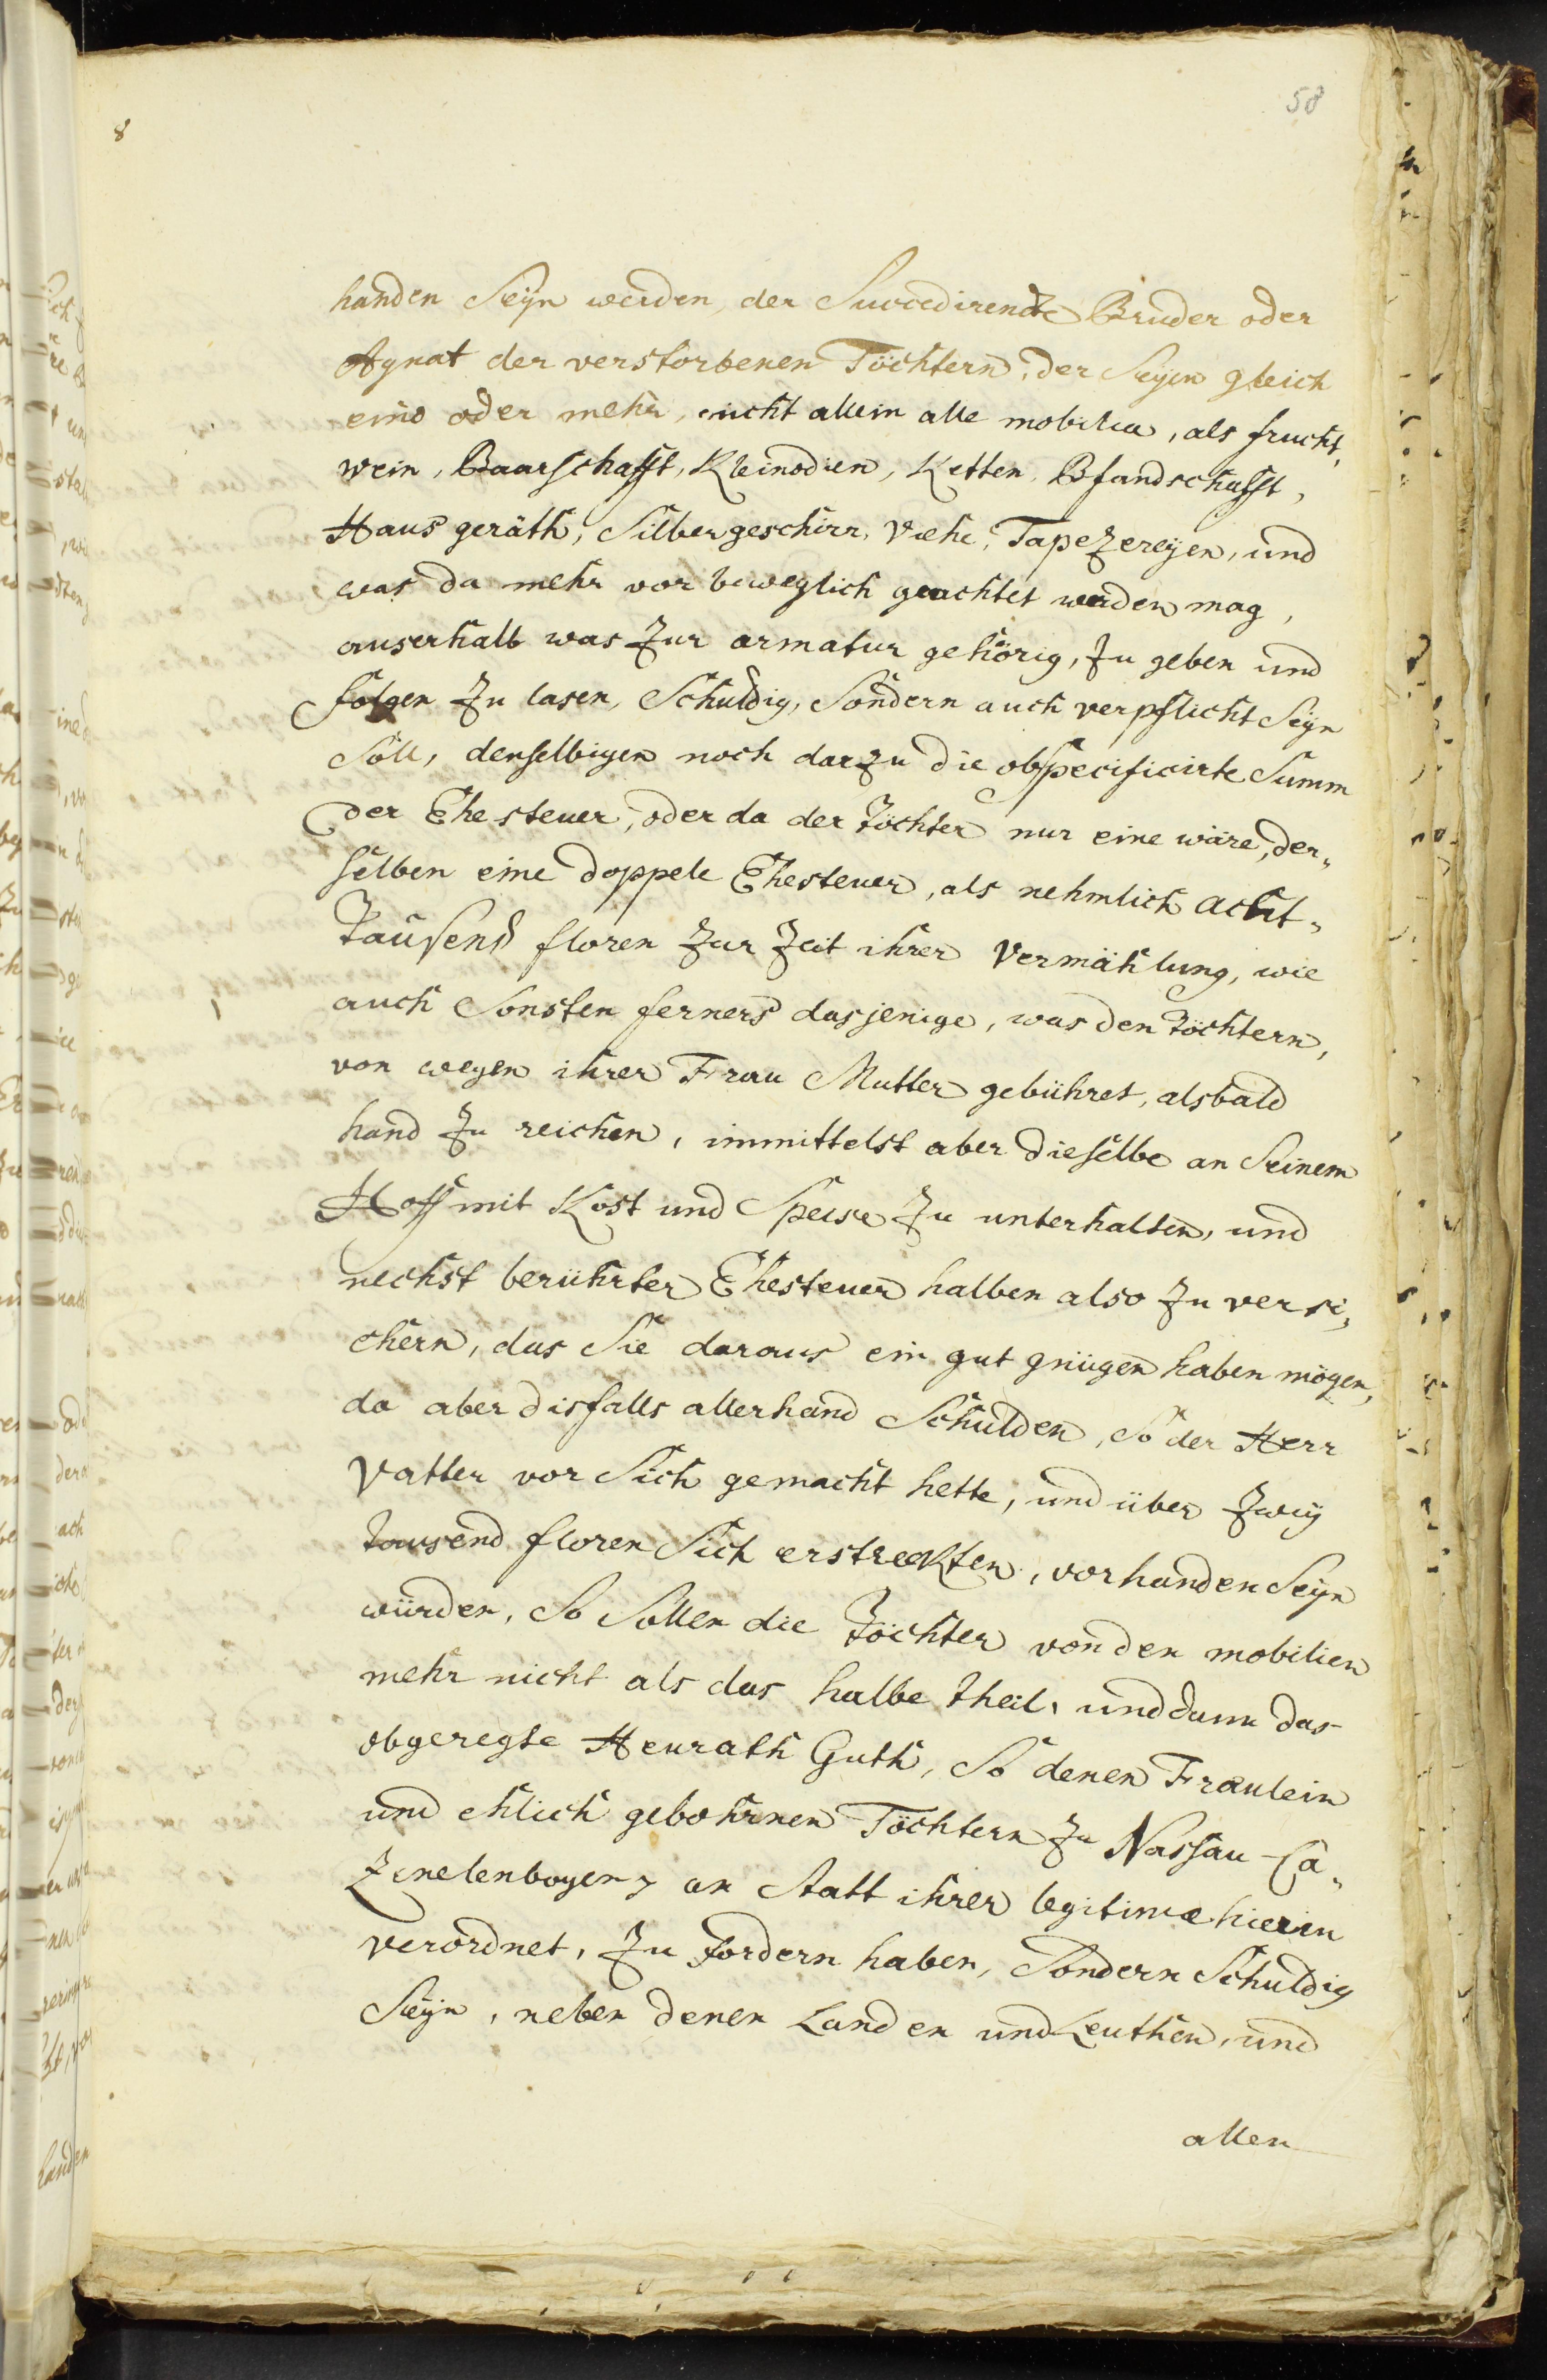 58
8
handen Seÿn werden, der Succedirende Bruder oder
Agnat der verstorbenen Töchtern, der Seyen gleich
eine oder mehr, nicht allein alle mobilia, als frucht,
wein, Baarschafft, Kleinodien, Ketten, Pfandschafft,
Haus geräth, Silbergeschirr, Viehe, Tapezereÿen, und
was da mehr vor beweglich geachtet werden mag,
auserhalb was zur armatur gehörig, zu geben und
folgen zu lasen, Schuldig, Sondern auch verpflicht Seÿn
Soll, denselbigen noch darzu die obspecificirte Summ
der Ehesteuer, oder da der Töchter nur eine wäre, der„
selben eine doppele Ehesteuer, als nehmlich acht„
Tausend floren zur Zeit ihrer Vermählung, wie
auch Sonsten ferners dasjenige, was den Töchtern,
von wegen ihrer Frau Mutter gebühret, alsbald
hand zu reichen, immittelst aber dieselbe an Seinem
Hoff mit Kost und Speise zu unterhalten, und
nechst berührter Ehesteuer halben also zu versi„
chern, das Sie daraus ein gut gnügen haben mögen,
da aber disfalls allerhand Schulden, So der Herr
Vatter vor Sich gemacht hette, und über zweÿ
tausend floren Sich erstreckten, vorhanden Seÿn
würden, So Sollen die Töchter von den mobilien
mehr nicht als das halbe theil, und dann das
obgeregte Heurath Guth, So denen Fraulein
und ehlich gebohrnen Töchtern zu Nassau-Ca„
zenelenbogen, an Statt ihrer legitimæ hierin
verordnet, zu fordern haben, Sondern Schuldig
Seÿn, neben denen Landen und Leuthen, und
allen